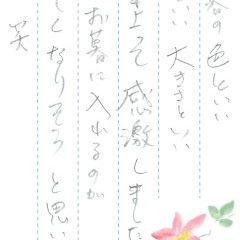 の色といい
いい 大きさといい
上って 感激しました
お暮に入れるのが
しくなりそう と思い
笑